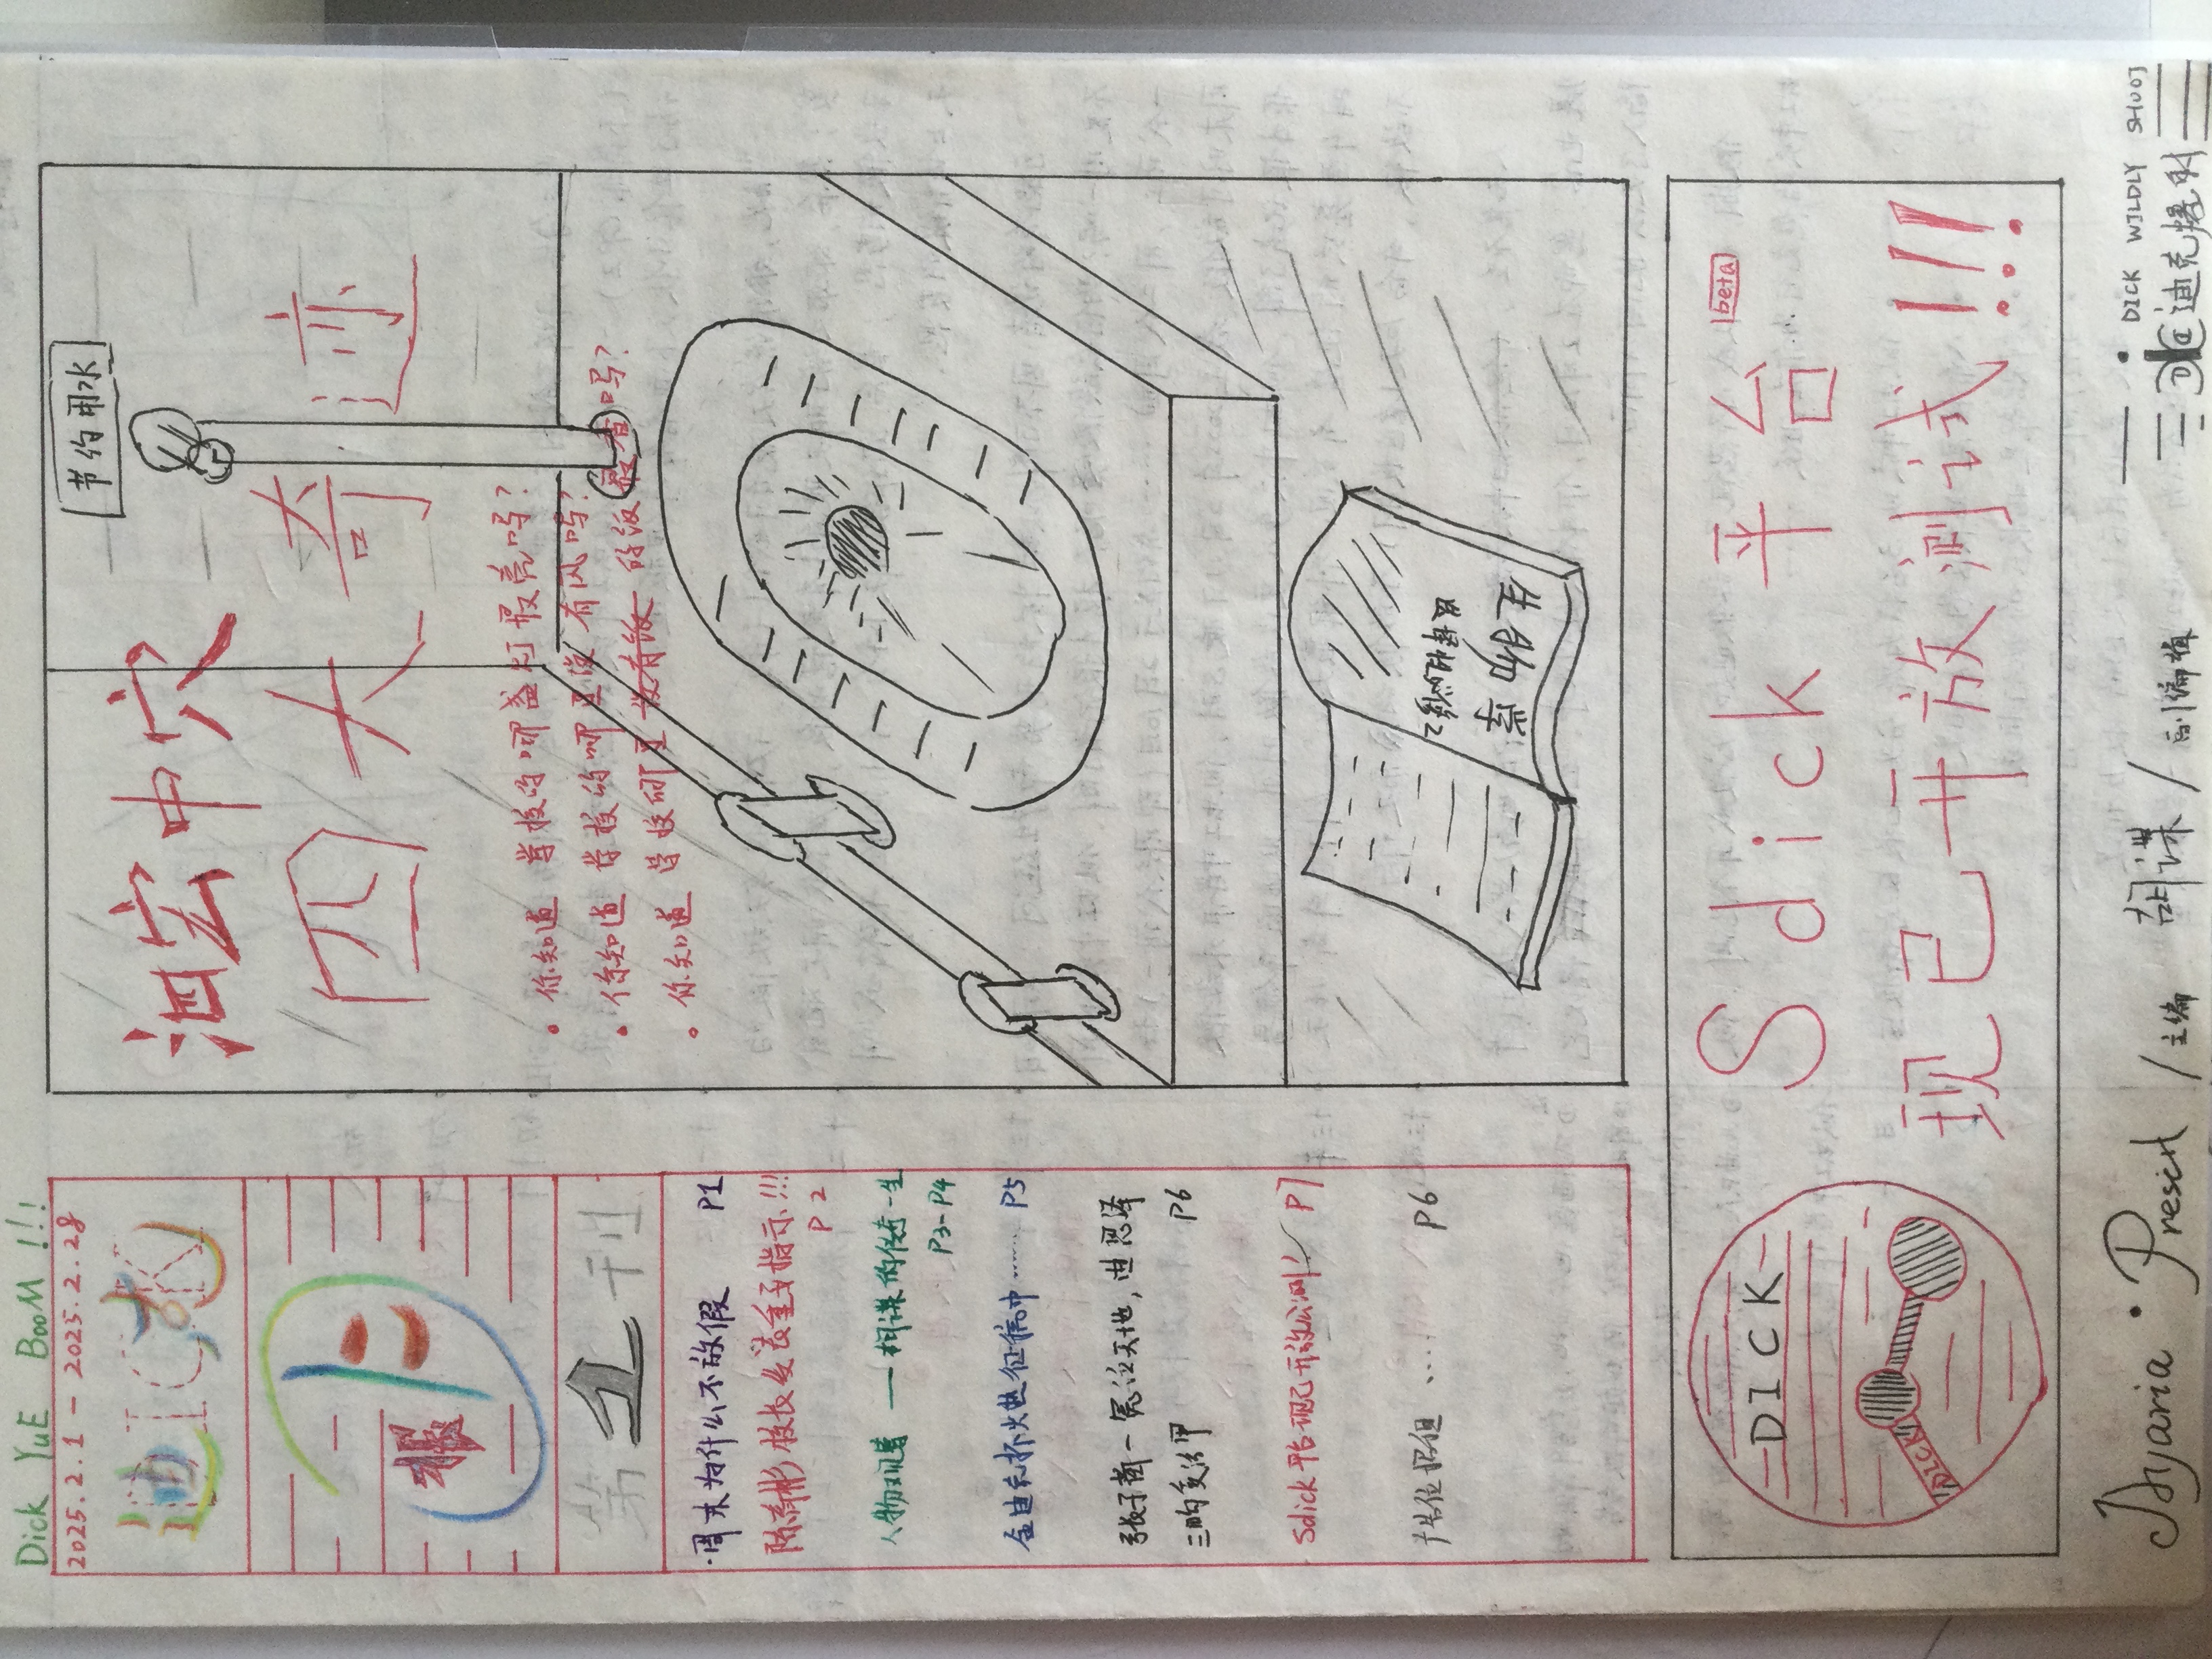 Dick YuE BooM !!!
2025.2.1 - 2025.2.28
迪克
DICK
报
第1刊
·周末为什么不放假 P1
校长发表重要指示!!!
P2
人物观暮 — 胡谋的传奇一生
P3-P4
金迪克杯火热征稿中…… P5
P6
Sdick平台现已开放公测! P7
广告位招租 …. P6
节约用水
泗宏中穴
四大奇迹
• 你知道 学校的哪盏灯最亮吗?
• 你知道 学校的哪里没有风吗?
• 你知道 学校哪里没有饭的饭最香吗?
生物学
DICK
DICK
Sdick 平台 beta
现已开放测试!!!
Ayaria · Present / 主编 胡谋 / 副编辑
DICK WILDLY SHOOT
迪克爆射